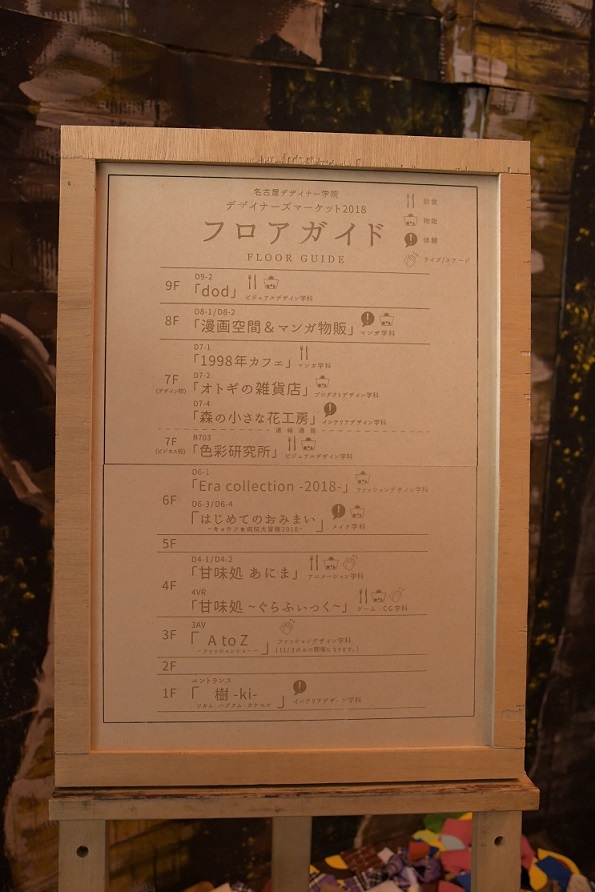 名古屋デザイナー学院
デザイナーズマーケット2018
フロアガイド
FLOOR GUIDE
飲食
物販
体験
ライブ/ステージ
9F
D9-2
「dod」
ビジュアルデザイン学科
8F
D8-1/D8-2
「漫画空間&マンガ物販」
マンガ学科
7F
(デザイン館)
D7-1
「1998年カフェ」
マンガ学科
D7-2
「オトギの雑貨店」
プロダクトデザイン学科
D7-4
「森の小さな花工房」
インテリアデザイン学科
連絡通路
7F
(ビジネス館)
B703
「色彩研究所」
ビジュアルデザイン学科
6F
D6-1
「Era collection -2018-」
ファッションデザイン学科
D6-3/D6-4
「はじめてのおみまい」
メイク学科
5F
4F
D4-1/D4-2
「甘味処 あにま」
アニメーション学科
4VR
「甘味処 ~ぐらふぃっく~」
ゲーム・CG学科
3F
3AV
「 A to Z 」
-ファッションショー-
ファッションデザイン学科
2F
1F
エントランス
「 樹 -ki- 」
インテリアデザイン学科